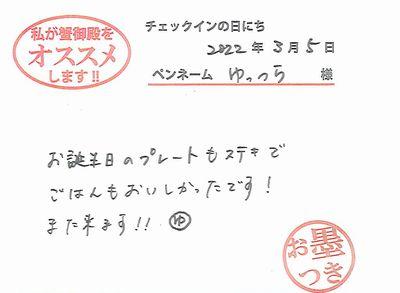 私が蟹御殿を
オススメ
します!!
チェックインの日にち
2022年3月5日
ペンネーム ゆっつら 様
お誕生日のプレートもステキで
ごはんもおいしかったです!
また来ます!! ゆ
お墨
つき